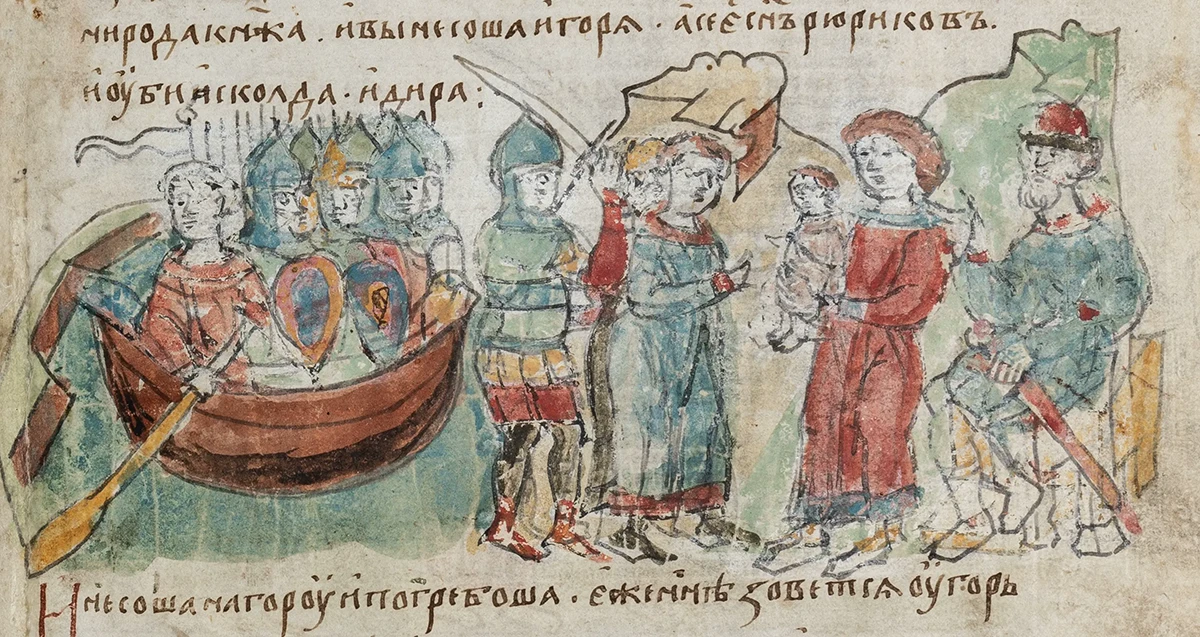 ми рода кн҃жа . и вынесоша игоря . а се є с҃нъ рюриковъ.
и оубиша асколда . и дира :
И несоша на гороу и погребоша . єже сѧ н҃нѣ зоветсѧ оугорь